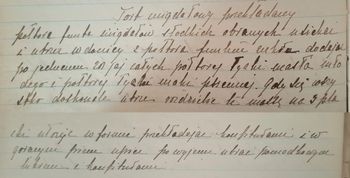 Tort migdałowy przekładany
półtora funta migdałów słodkich obranych usiekać
i utrzeć w donicy z półtora funtem cukru dodając
po jednemu 20 jaj całych półtorej łyżki masła młodego
i półtorej łyżki mąki pszennej. Gdy się wszystko
doskonale utrze rozdzielić tę masę na 3 pla
cki włożyć w formę przekładając konfiturami i w
gorącym piecu upiec po wyjęciu ubrać
lukrem i konfiturami